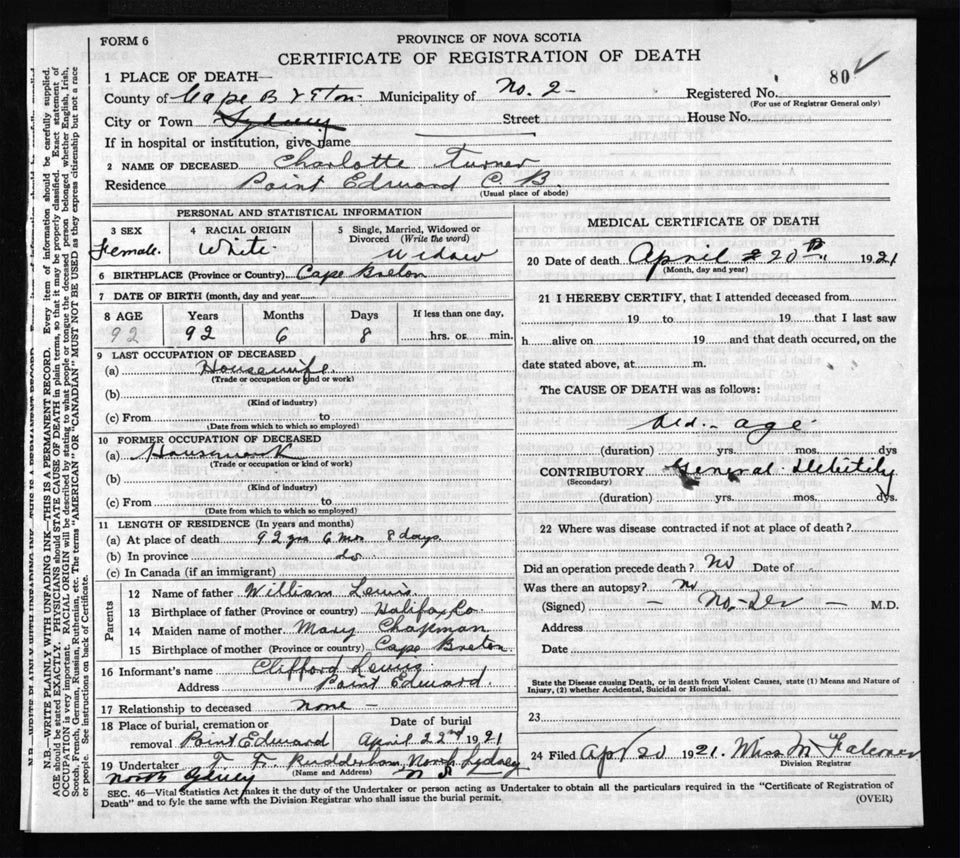 FORM 6
PROVINCE OF NOVA SCOTIA
CERTIFICATE OF REGISTRATION OF DEATH
80
1 PLACE OF DEATH—
County of Cape Breton Municipality of No. 2 - Registered No.
(For use of Registrar General only)
City or Town Sydney Street House No.
If in hospital or institution, give name
2 NAME OF DECEASED Charlotte Turner
Residence Point Edward C. B.
(Usual place of abode)
PERSONAL AND STATISTICAL INFORMATION
3 SEX 4 RACIAL ORIGIN 5 Single, Married, Widowed or Divorced (Write the word)
Female. White Widow
6 BIRTHPLACE (Province or Country) Cape Breton
7 DATE OF BIRTH (month, day and year)
8 AGE Years Months Days If less than one day,
92 92 6 8 hrs. or min.
9 LAST OCCUPATION OF DECEASED
(a) Housewife
(Trade or occupation or kind of work)
(b)
(Kind of industry)
(c) From to
(Date from which to which so employed)
10 FORMER OCCUPATION OF DECEASED
(a) Housework
(Trade or occupation or kind of work)
(b)
(Kind of industry)
(c) From to
(Date from which to which so employed)
11 LENGTH OF RESIDENCE (In years and months)
(a) At place of death 92 yrs 6 mos 8 days
(b) In province do
(c) In Canada (if an immigrant)
Parents
12 Name of father William Lewis
13 Birthplace of father (Province or country) Halifax Co
14 Maiden name of mother Mary Chapman
15 Birthplace of mother (Province or country) Cape Breton
16 Informant's name Clifford Lewis
Address Point Edward.
17 Relationship to deceased None -
18 Place of burial, cremation or Date of burial
removal Point Edward April 22nd 1921
19 Undertaker F. Rudderham North Sydney
(Name and Address)
North Sydney N S
MEDICAL CERTIFICATE OF DEATH
20 Date of death April 20th 1921
(Month, day and year)
21 I HEREBY CERTIFY, that I attended deceased from
19 to 19 that I last saw
h alive on 19 and that death occurred, on
date stated above, at m.
The CAUSE OF DEATH was as follows:
Old age
(duration) yrs. mos. dys
CONTRIBUTORY General Debility
(Secondary)
(duration) yrs. mos. dys.
22 Where was disease contracted if not at place of death?
Did an operation precede death? No Date of
Was there an autopsy? No
(Signed) - No. - M.D.
Address
Date
State the Disease causing Death, or in death from Violent Causes, state (1) Means and Nature of
Injury, (2) whether Accidental, Suicidal or Homicidal.
23
24 Filed Apr 20 1921. Miss M Falconer
Division Registrar
SEC. 46—Vital Statistics Act makes it the duty of the Undertaker or person acting as Undertaker to obtain all the particulars required in the "Certificate of Registration of
Death" and to fyle the same with the Division Registrar who shall issue the burial permit.
(OVER)
N.B.—WRITE PLAINLY WITH UNFADING INK—THIS IS A PERMANENT RECORD. Every item of information should be carefully supplied.
AGE should be stated EXACTLY. PHYSICIANS should STATE CAUSE OF DEATH in plain terms, so that it may be properly classified. Exact statement of
OCCUPATION is very important. RACIAL ORIGIN will be described by stating to what people or tongue the deceased person belonged whether English, Irish,
Scotch, French, German, Russian, Ruthenian, etc. The terms "AMERICAN" or "CANADIAN" MUST NOT BE USED as they express citizenship but not a race
or people. See instructions on back of Certificate.